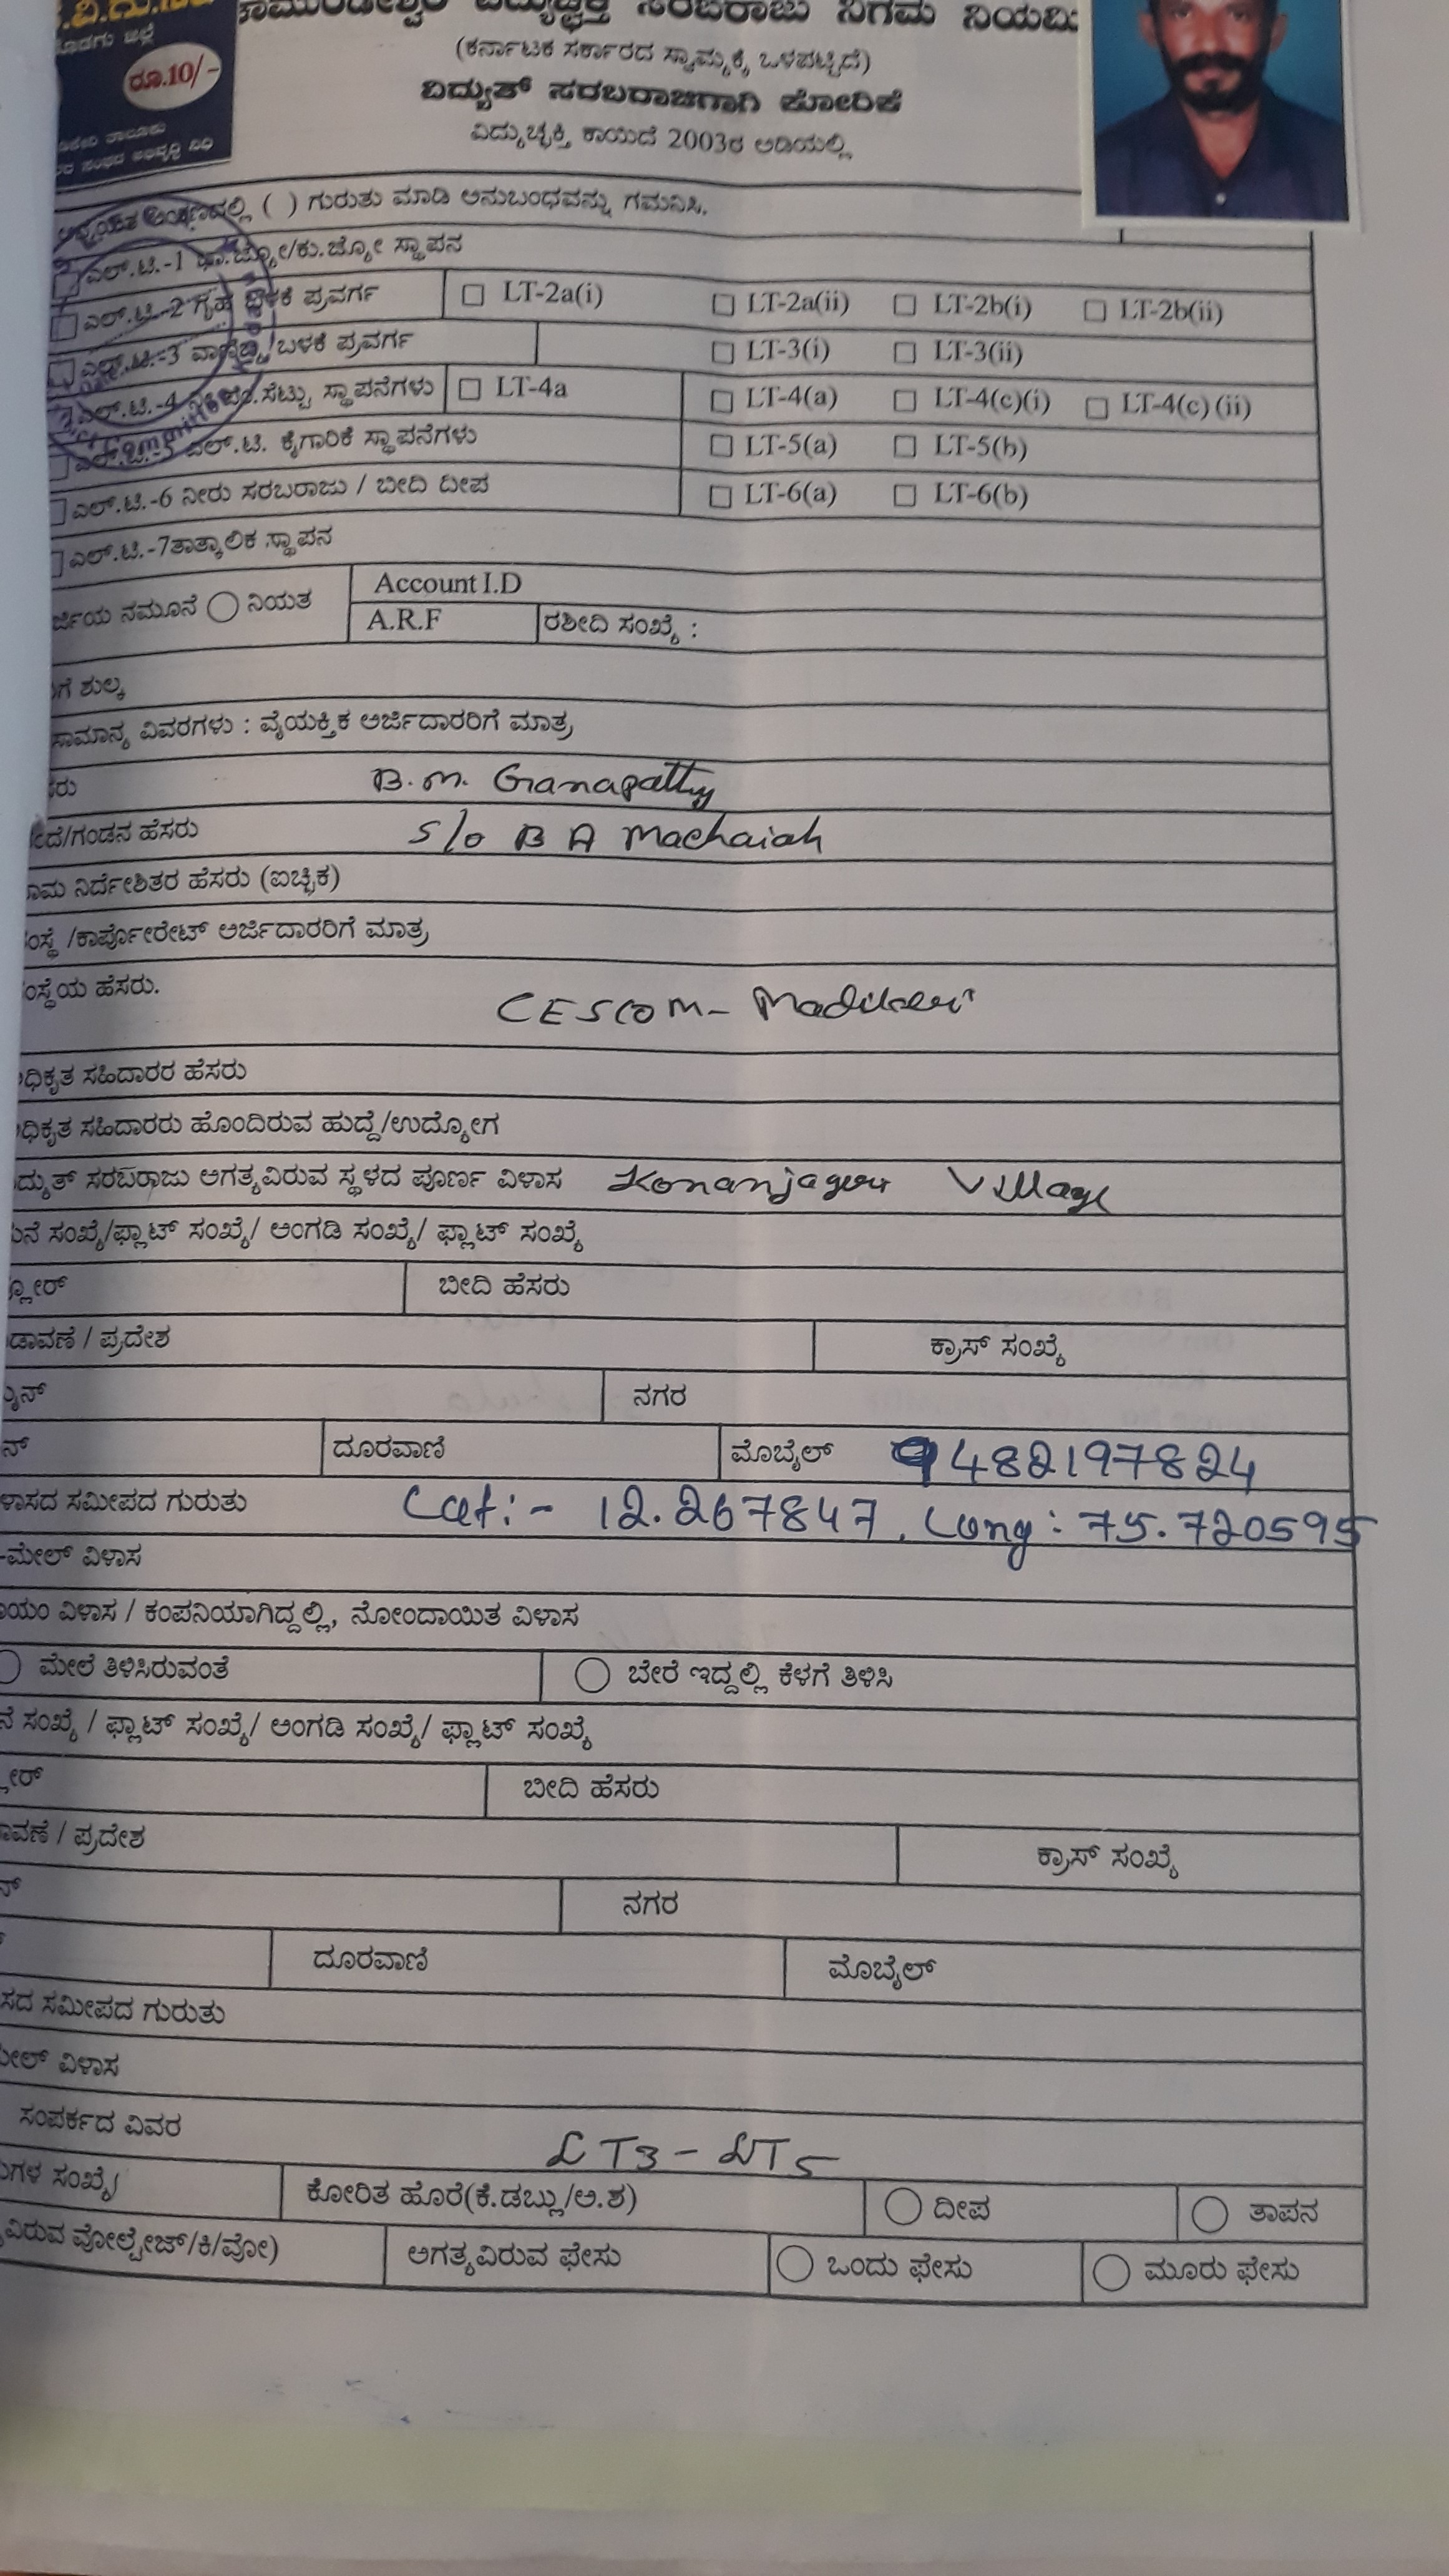 ರೂ.10/-
ವಿದ್ಯುಚ್ಛಕ್ತಿ ಸರಬರಾಜು ನಿಗಮ ನಿಯಮಿ
(ಕರ್ನಾಟಕ ಸರ್ಕಾರದ ಸ್ವಾಮ್ಯಕ್ಕೆ ಒಳಪಟ್ಟಿದೆ)
ವಿದ್ಯುತ್ ಸರಬರಾಜಿಗಾಗಿ ಕೋರಿಕೆ
ವಿದ್ಯುಚ್ಛಕ್ತಿ ಕಾಯಿದೆ 2003ರ ಅಡಿಯಲ್ಲಿ
( ) ಗುರುತು ಮಾಡಿ ಅನುಬಂಧವನ್ನು ಗಮನಿಸಿ.
ಎಲ್.ಟಿ.-1 ಭಾ.ಜ್ಯೋ/ಕು.ಜ್ಯೋ ಸ್ಥಾಪನ
ಎಲ್.ಟಿ.-2 ಗೃಹ ಬಳಕೆ ಪ್ರವರ್ಗ LT-2a(i) LT-2a(ii) LT-2b(i) LT-2b(ii)
ಎಲ್.ಟಿ.-3 ವಾಣಿಜ್ಯ ಬಳಕೆ ಪ್ರವರ್ಗ LT-3(i) LT-3(ii)
ಎಲ್.ಟಿ.-4 ನೀ.ಪಂ.ಸೆಟ್ಟು ಸ್ಥಾಪನೆಗಳು LT-4a LT-4(a) LT-4(c)(i) LT-4(c)(ii)
ಎಲ್.ಟಿ.-5 ಎಲ್.ಟಿ. ಕೈಗಾರಿಕೆ ಸ್ಥಾಪನೆಗಳು LT-5(a) LT-5(b)
ಎಲ್.ಟಿ.-6 ನೀರು ಸರಬರಾಜು / ಬೀದಿ ದೀಪ LT-6(a) LT-6(b)
ಎಲ್.ಟಿ.-7ತಾತ್ಕಾಲಿಕ ಸ್ಥಾಪನ
ರ್ಜಿಯ ನಮೂನೆ ನಿಯತ Account I.D
A.R.F ರಶೀದಿ ಸಂಖ್ಯೆ :
ಗೆ ಶುಲ್ಕ
ಸಾಮಾನ್ಯ ವಿವರಗಳು : ವೈಯಕ್ತಿಕ ಅರ್ಜಿದಾರರಿಗೆ ಮಾತ್ರ
ಸರು B.M. Ganapathy
ದೆ/ಗಂಡನ ಹೆಸರು S/o B A Machaiah
ನಾಮ ನಿರ್ದೇಶಿತರ ಹೆಸರು (ಐಚ್ಛಿಕ)
ಂಸ್ಥೆ /ಕಾರ್ಪೋರೇಟ್ ಅರ್ಜಿದಾರರಿಗೆ ಮಾತ್ರ
ಂಸ್ಥೆಯ ಹೆಸರು. CESCOM - Madikeri
ಧಿಕೃತ ಸಹಿದಾರರ ಹೆಸರು
ಧಿಕೃತ ಸಹಿದಾರರು ಹೊಂದಿರುವ ಹುದ್ದೆ/ಉದ್ಯೋಗ
ದ್ಯುತ್ ಸರಬರಾಜು ಅಗತ್ಯವಿರುವ ಸ್ಥಳದ ಪೂರ್ಣ ವಿಳಾಸ Konanjageri Village
ನೆ ಸಂಖ್ಯೆ/ಫ್ಲಾಟ್ ಸಂಖ್ಯೆ/ ಅಂಗಡಿ ಸಂಖ್ಯೆ/ ಫ್ಲಾಟ್ ಸಂಖ್ಯೆ
್ಲೋರ್ ಬೀದಿ ಹೆಸರು
ಡಾವಣೆ / ಪ್ರದೇಶ ಕ್ರಾಸ್ ಸಂಖ್ಯೆ
ನಗರ
ನ್ ದೂರವಾಣಿ ಮೊಬೈಲ್ 9482197824
ಳಾಸದ ಸಮೀಪದ ಗುರುತು Lat:- 12.267847, Long: 75.720595
-ಮೇಲ್ ವಿಳಾಸ
ಾಯಂ ವಿಳಾಸ / ಕಂಪನಿಯಾಗಿದ್ದಲ್ಲಿ, ನೋಂದಾಯಿತ ವಿಳಾಸ
ಮೇಲೆ ತಿಳಿಸಿರುವಂತೆ ಬೇರೆ ಇದ್ದಲ್ಲಿ ಕೆಳಗೆ ತಿಳಿಸಿ
ನೆ ಸಂಖ್ಯೆ / ಫ್ಲಾಟ್ ಸಂಖ್ಯೆ/ ಅಂಗಡಿ ಸಂಖ್ಯೆ/ ಫ್ಲಾಟ್ ಸಂಖ್ಯೆ
್ಲೋರ್ ಬೀದಿ ಹೆಸರು
ಾವಣೆ / ಪ್ರದೇಶ ಕ್ರಾಸ್ ಸಂಖ್ಯೆ
ನಗರ
ದೂರವಾಣಿ ಮೊಬೈಲ್
ಸದ ಸಮೀಪದ ಗುರುತು
ಮೇಲ್ ವಿಳಾಸ
ಸಂಪರ್ಕದ ವಿವರ LT3 - LT5
ಗಳ ಸಂಖ್ಯೆ/ ಕೋರಿತ ಹೊರೆ(ಕೆ.ಡಬ್ಲು/ಅ.ಶ) ದೀಪ ತಾಪನ
ವಿರುವ ವೋಲ್ಟೇಜ್/ಕಿ/ವೋ) ಅಗತ್ಯವಿರುವ ಫೇಸು ಒಂದು ಫೇಸು ಮೂರು ಫೇಸು